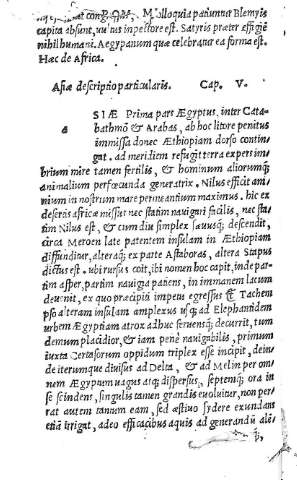 cong. Qbas, M olloquia patiuntur Blemyis
capita absunt, uultus in pectore est. Satyris præter effigiẽ
nihil humani. Aegypanum quæ celebratur ea forma est.
Hæc de Africa.
Asiæ descriptio particularis. Cap. V.
a SIÆ Prima pars Ægyptus, inter Cata-
bathmõ & Arabas, ab hoc litore penitus
immissa donec Æthiopiam dorso contin-
gat. ad meridiem refugit terra expers im-
brium mire tamen fertilis, & hominum aliorumq;
animalium perfœcunda generatrix. Nilus efficit am-
nium in nostrum mare permeantium maximus. hic ex
desertis africæ missus nec statim nauigari facilis, nec sta-
tim Nilus est, & cum diu simplex sæuusq; descendit,
circa Meroen late patentem insulam in Æthiopiam
diffunditur, alteraq; ex parte Astaboras, altera Stapus
dictus est. ubi rursus coit, ibi nomen hoc capit, inde par-
tim asper, partim nauigia patiens, in immanem lacum
deuenit, ex quo præcipiti impetu egressus & Tachem
pso alteram insulam amplexus usq; ad Elephantidem
urbem Ægyptiam atrox adhuc feruensq; decurrit, tum
demum placidior, & iam penè nauigabilis, primum
iuxta Cercasorum oppidum triplex esse incipit, dein
de iterumque diuisus ad Delta, & ad Melin per om-
nem Ægyptum uagus atq; dispersus, septemq; ora in
se scindens, singulis tamen grandis euoluitur, non per-
rat autem tantum eam, sed æstiuo sydere exundans
etiã irrigat, adeo efficacibus aquis ad generandũ alẽ-